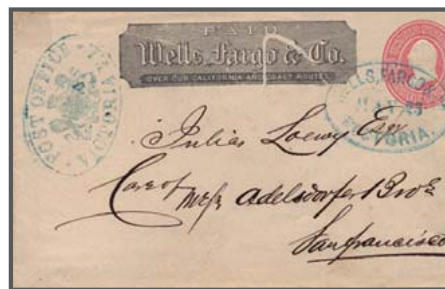 PAID
Wells, Fargo & Co.
OVER OUR CALIFORNIA AND COAST ROUTES.
POST OFFICE VICTORIA V.I.
WELLS, FARGO &
VICTORIA
Julius Loewy Esqr
Care of Messr Adelsdorfer Bros
San francisco